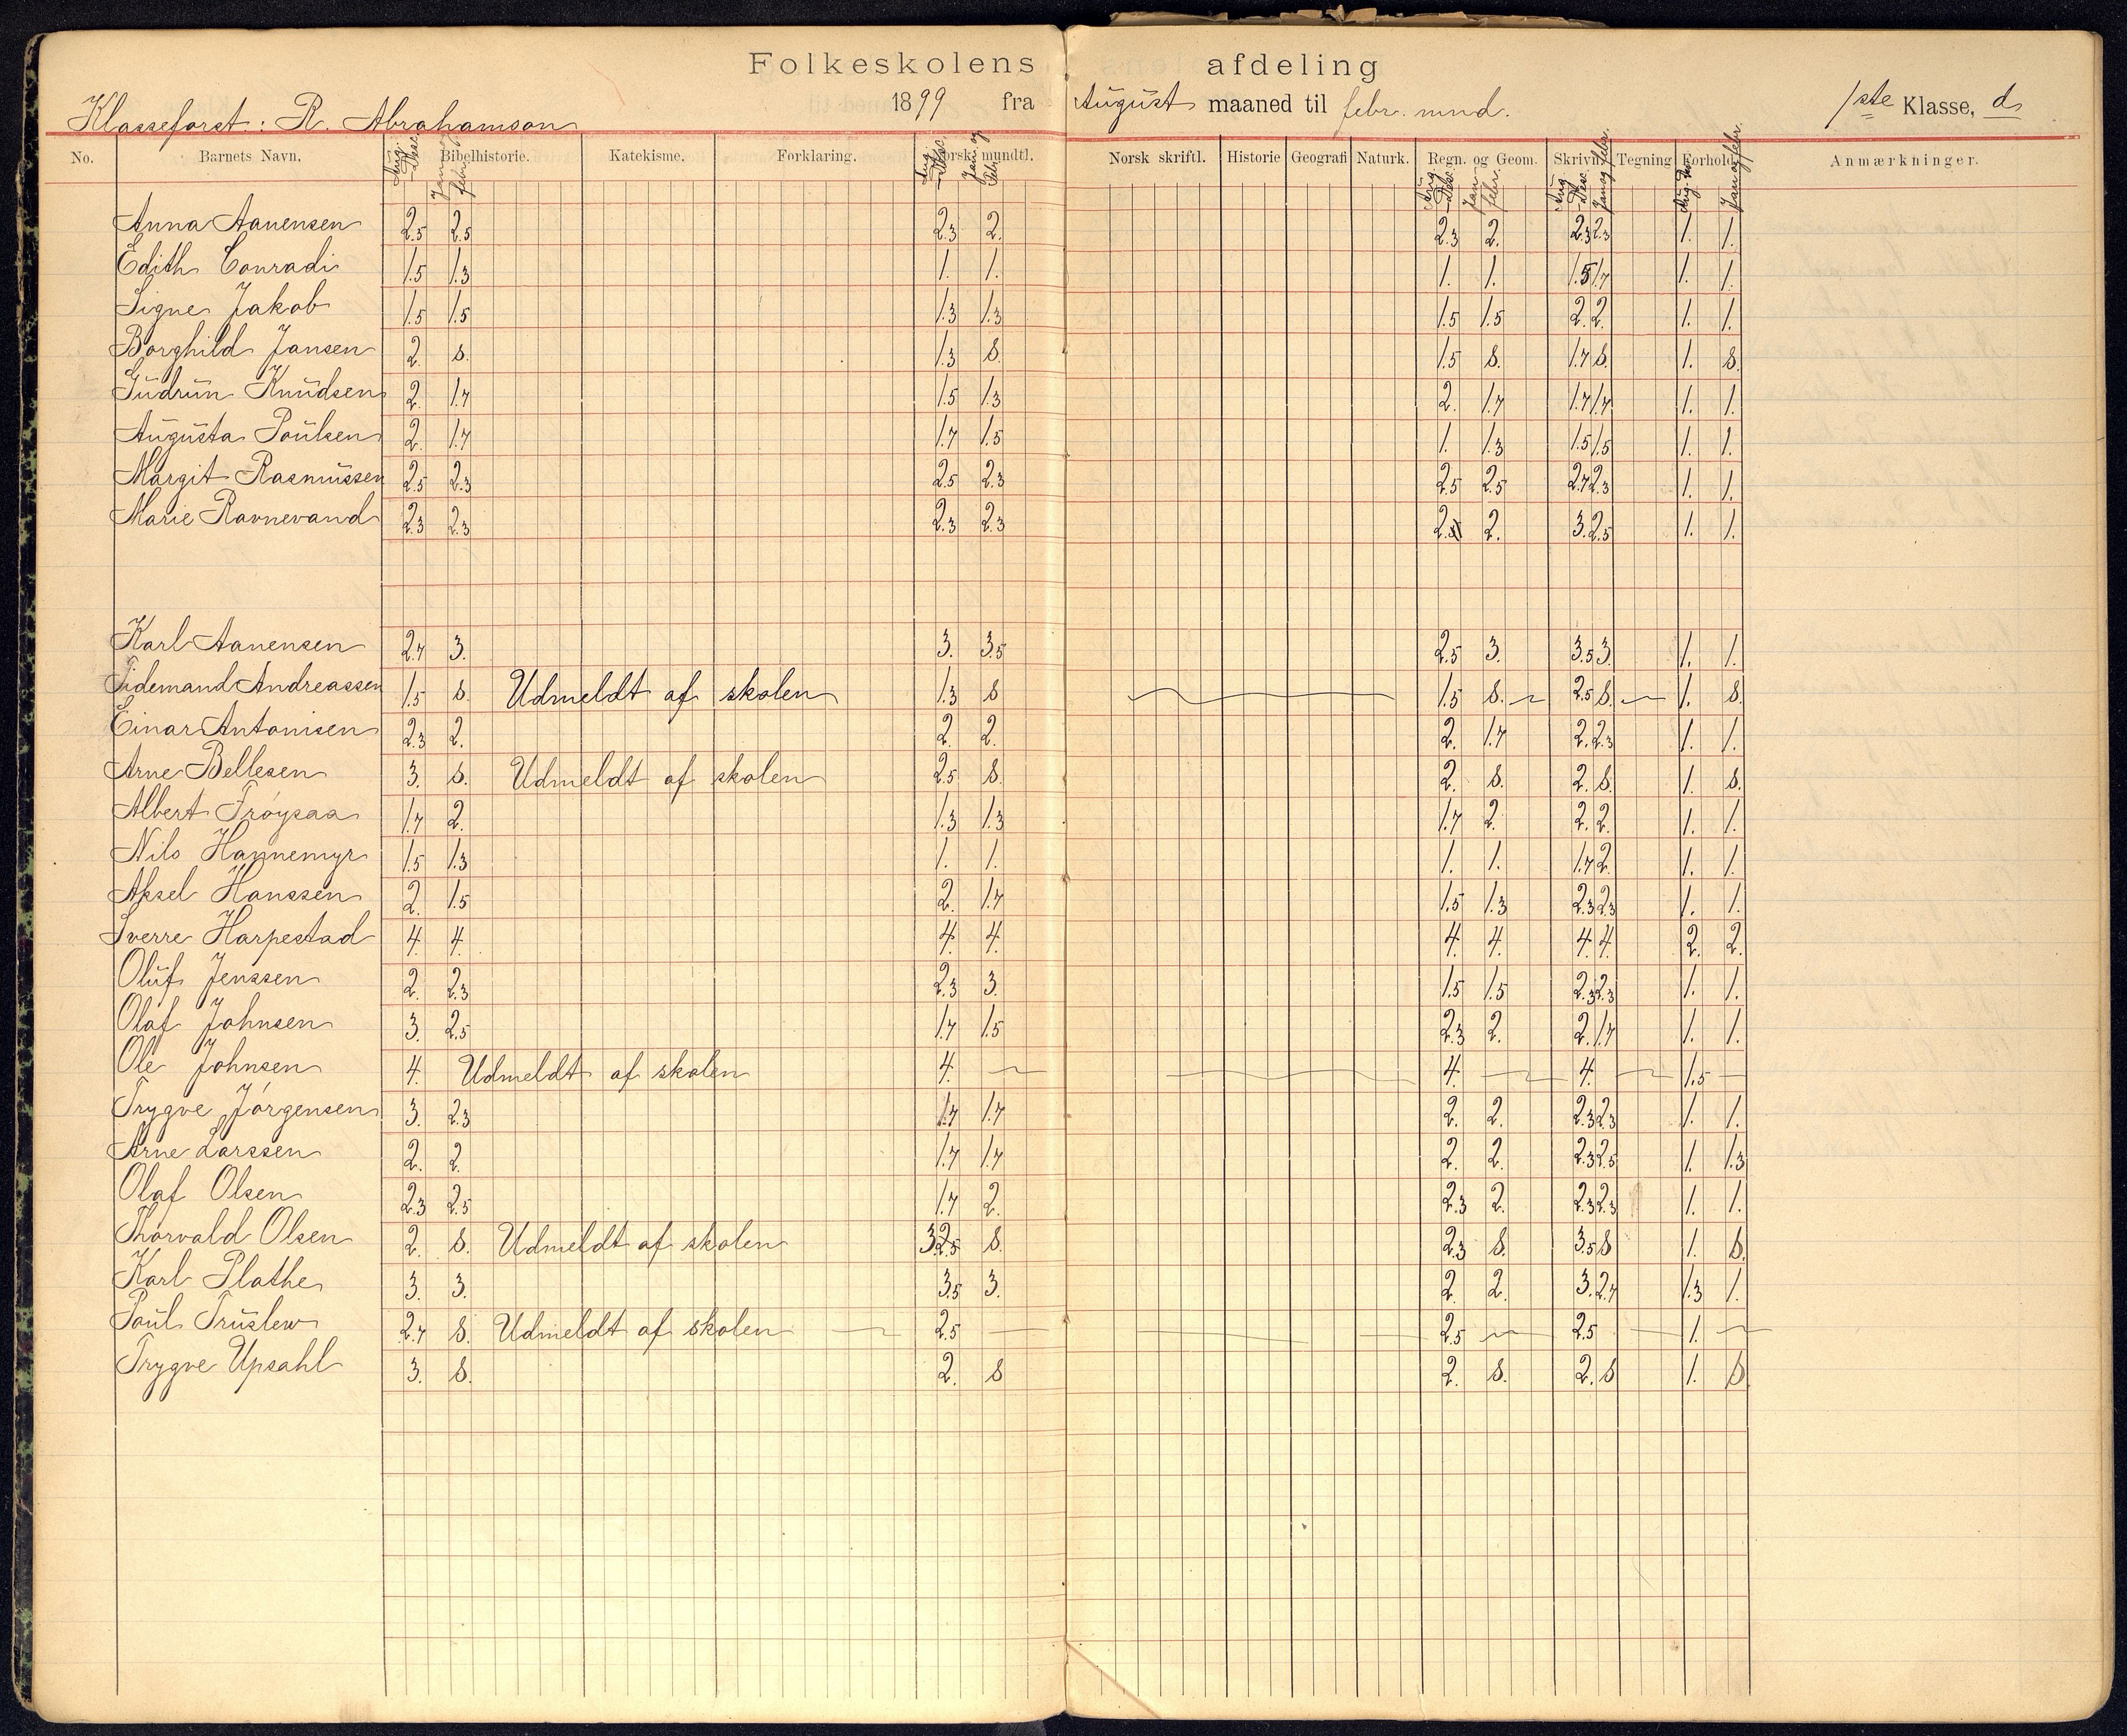 Folkeskolens afdeling
Klasseforst: R. Abrahamson 1899 fra August maaned til febr. mnd. 1ste Klasse, d
No. Barnets Navn. Bibelhistorie. Katekisme. Forklaring. Norsk mundtl. Norsk skriftl. Historie Geografi Naturk. Regn. og Geom. Skrivn. Tegning Forhold. Anmærkninger.
Aug.-Dec. Jan og febr. Aug.-Dec. Jan og Febr. Aug-Dec. Jan febr. Aug-Dec. Jan og febr. Aug-Dec. Jan og febr.
Anna Aanensen 2.5 2.5 2.3 2. 2.3 2. 2.3 2.3 1. 1.
Edith Conradi 1.5 1.3 1. 1. 1. 1. 1.5 1.7 1. 1.
Signe Jakob 1.5 1.5 1.3 1.3 1.5 1.5 2. 2. 1. 1.
Borghild Jansen 2. s. 1.3 s. 1.5 s. 1.7 s. 1. s.
Gudrun Knudsen 2. 1.7 1.5 1.3 2. 1.7 1.7 1.7 1. 1.
Augusta Poulsen 2. 1.7 1.7 1.5 1. 1.3 1.5 1.5 1. 1.
Margit Rasmussen 2.5 2.3 2.5 2.3 2.5 2.5 2.7 2.3 1. 1.
Marie Ravnevand 2.3 2.3 2.3 2.3 2. 2. 3. 2.5 1. 1.
Karl Aanensen 2.7 3. 3. 3.5 2.5 3. 3.5 3. 1. 1.
Tidemand Andreassen 1.5 s. Udmeldt af skolen 1.3 s 1.5 s. 2.5 s. 1. s.
Einar Antonisen 2.3 2. 2. 2. 2. 1.7 2. 2.3 1. 1.
Arne Bellesen 3. s. Udmeldt af skolen 2.5 s. 2. s. 2. s. 1. s.
Albert Frøysaa 1.7 2. 1.3 1.3 1.7 2. 2. 2. 1. 1.
Nils Hannemyr 1.5 1.3 1. 1. 1. 1. 1.7 2. 1. 1.
Aksel Hanssen 2. 1.5 2. 1.7 1.5 1.3 2.3 2.3 1. 1.
Sverre Harpestad 4. 4. 4. 4. 4. 4. 4. 4. 2. 2.
Oluf Jenssen 2. 2.3 2.3 3. 1.5 1.5 2.3 2.3 1. 1.
Olaf Johnsen 3. 2.5 1.7 1.5 2.3 2. 2. 1.7 1. 1.
Ole Johnsen 4. Udmeldt af skolen 4. 4. 4. 1.5
Trygve Jörgensen 3. 2.3 1.7 1.7 2. 2. 2.3 2.3 1. 1.
Arne Larssen 2. 2. 1.7 1.7 2. 2. 2.3 2.5 1. 1.3
Olaf Olsen 2.3 2.5 1.7 2. 2.3 2. 2.3 2.3 1. 1.
Thorvald Olsen 2. s. Udmeldt af skolen 2.5 s. 2.3 s. 3.5 s 1. s.
Karl Plathe 3. 3. 3.5 3. 2. 2. 3. 2.7 1.3 1.
Poul Truslew 2.7 s. Udmeldt af skolen 2.5 2.5 2.5 1.
Trygve Upsahl 3. s. 2. s 2. s. 2. s 1. s